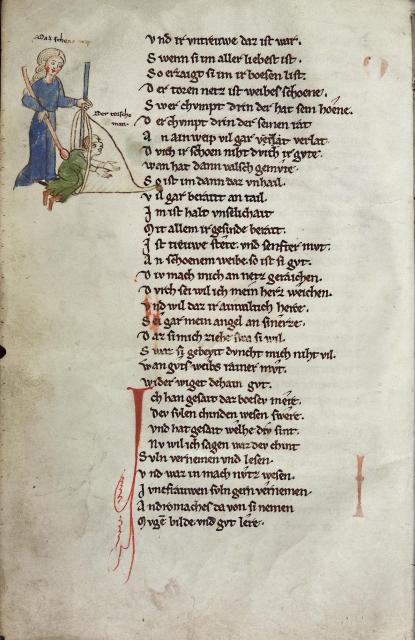 Daz schone wip
Der valsche man.
Vnd ir vntreuwe daz ist war.
Swenn si im aller liebest ist.
So erzaigt si im ir boesen list.
Der toren netz ist weibes schoene.
Swer chvmpt drin der hat sein hoene.
Der chvmpt drin der seinen rat
An ain weip vil gar verlat
Dvrch ir schoen niht dvrch ir gvte.
wan hat dann valsch gemvte.
So ist im dann daz vnhail.
Vil gar beraitt an tail.
Im ist halt vnselichait
Mit allem ir gesinde berait.
Ist treuwe stete. vnd senfter mvt.
An schoenem weibe. so ist si gvt.
Div mach mich an netz geraichen.
Dvrch sei wil ich mein herz weichen.
Vnd wil daz ir
Sei gar mein angel an
Daz si mich ziehe swa si wil.
Swaz si gebevt dvncht mich niht vil.
wan gvts weibs rainer mvt.
wider wiget dehain gvt.
Ich han gesait daz boesev mere.
Dev svlen chinden wesen swere.
Vnd hat gesait welhe div sint.
Nv wil ich sagen waz dev chint
Svln vernemen vnd lesen.
Vnd waz in mach nvtz wesen.
Ivncfrauwen svln gern vernemen.
Andromaches da von si nemen
Mvgen bilde vnd gvt lere.